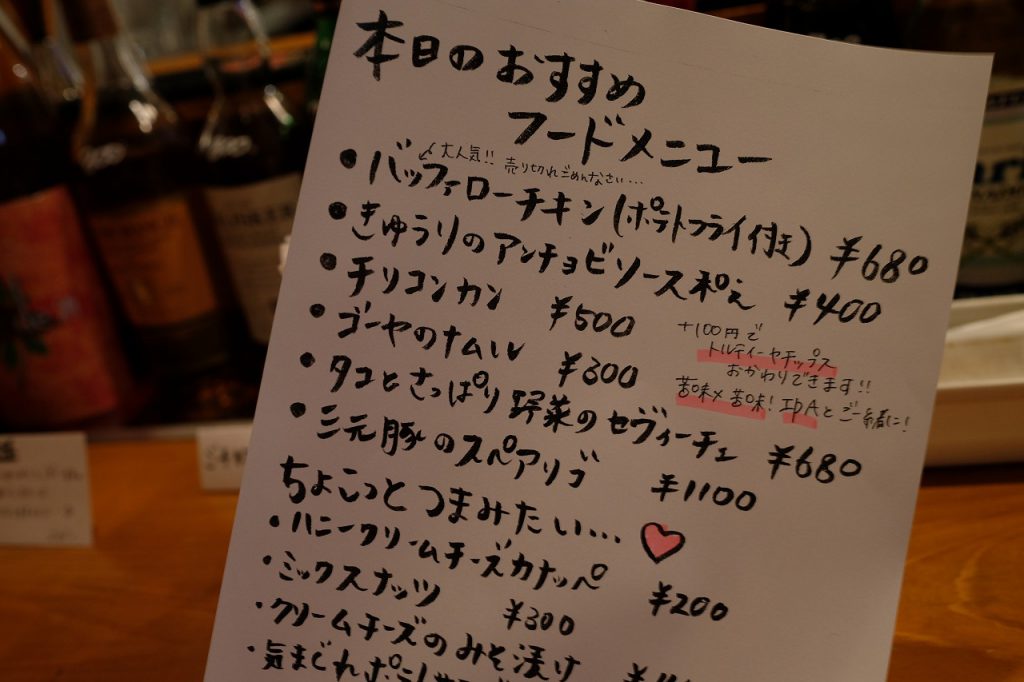 本日のおすすめ
フードメニュー
大人気!! 売り切れごめんなさい...
• バッファローチキン(ポテトフライ付き) ¥680
• きゅうりのアンチョビソース和え ¥400
• チリコンカン ¥500
+100円で
トルティーヤチップス
おかわりできます!!
• ゴーヤのナムル ¥300
苦味×苦味! IPAとご一緒に!
• タコとさっぱり野菜のセヴィーチェ ¥680
• 三元豚のスペアリブ ¥1100
ちょこっとつまみたい...
・ハニークリームチーズカナッペ ¥200
・ミックスナッツ ¥300
・クリームチーズのみそ漬け
・気まぐれポテト